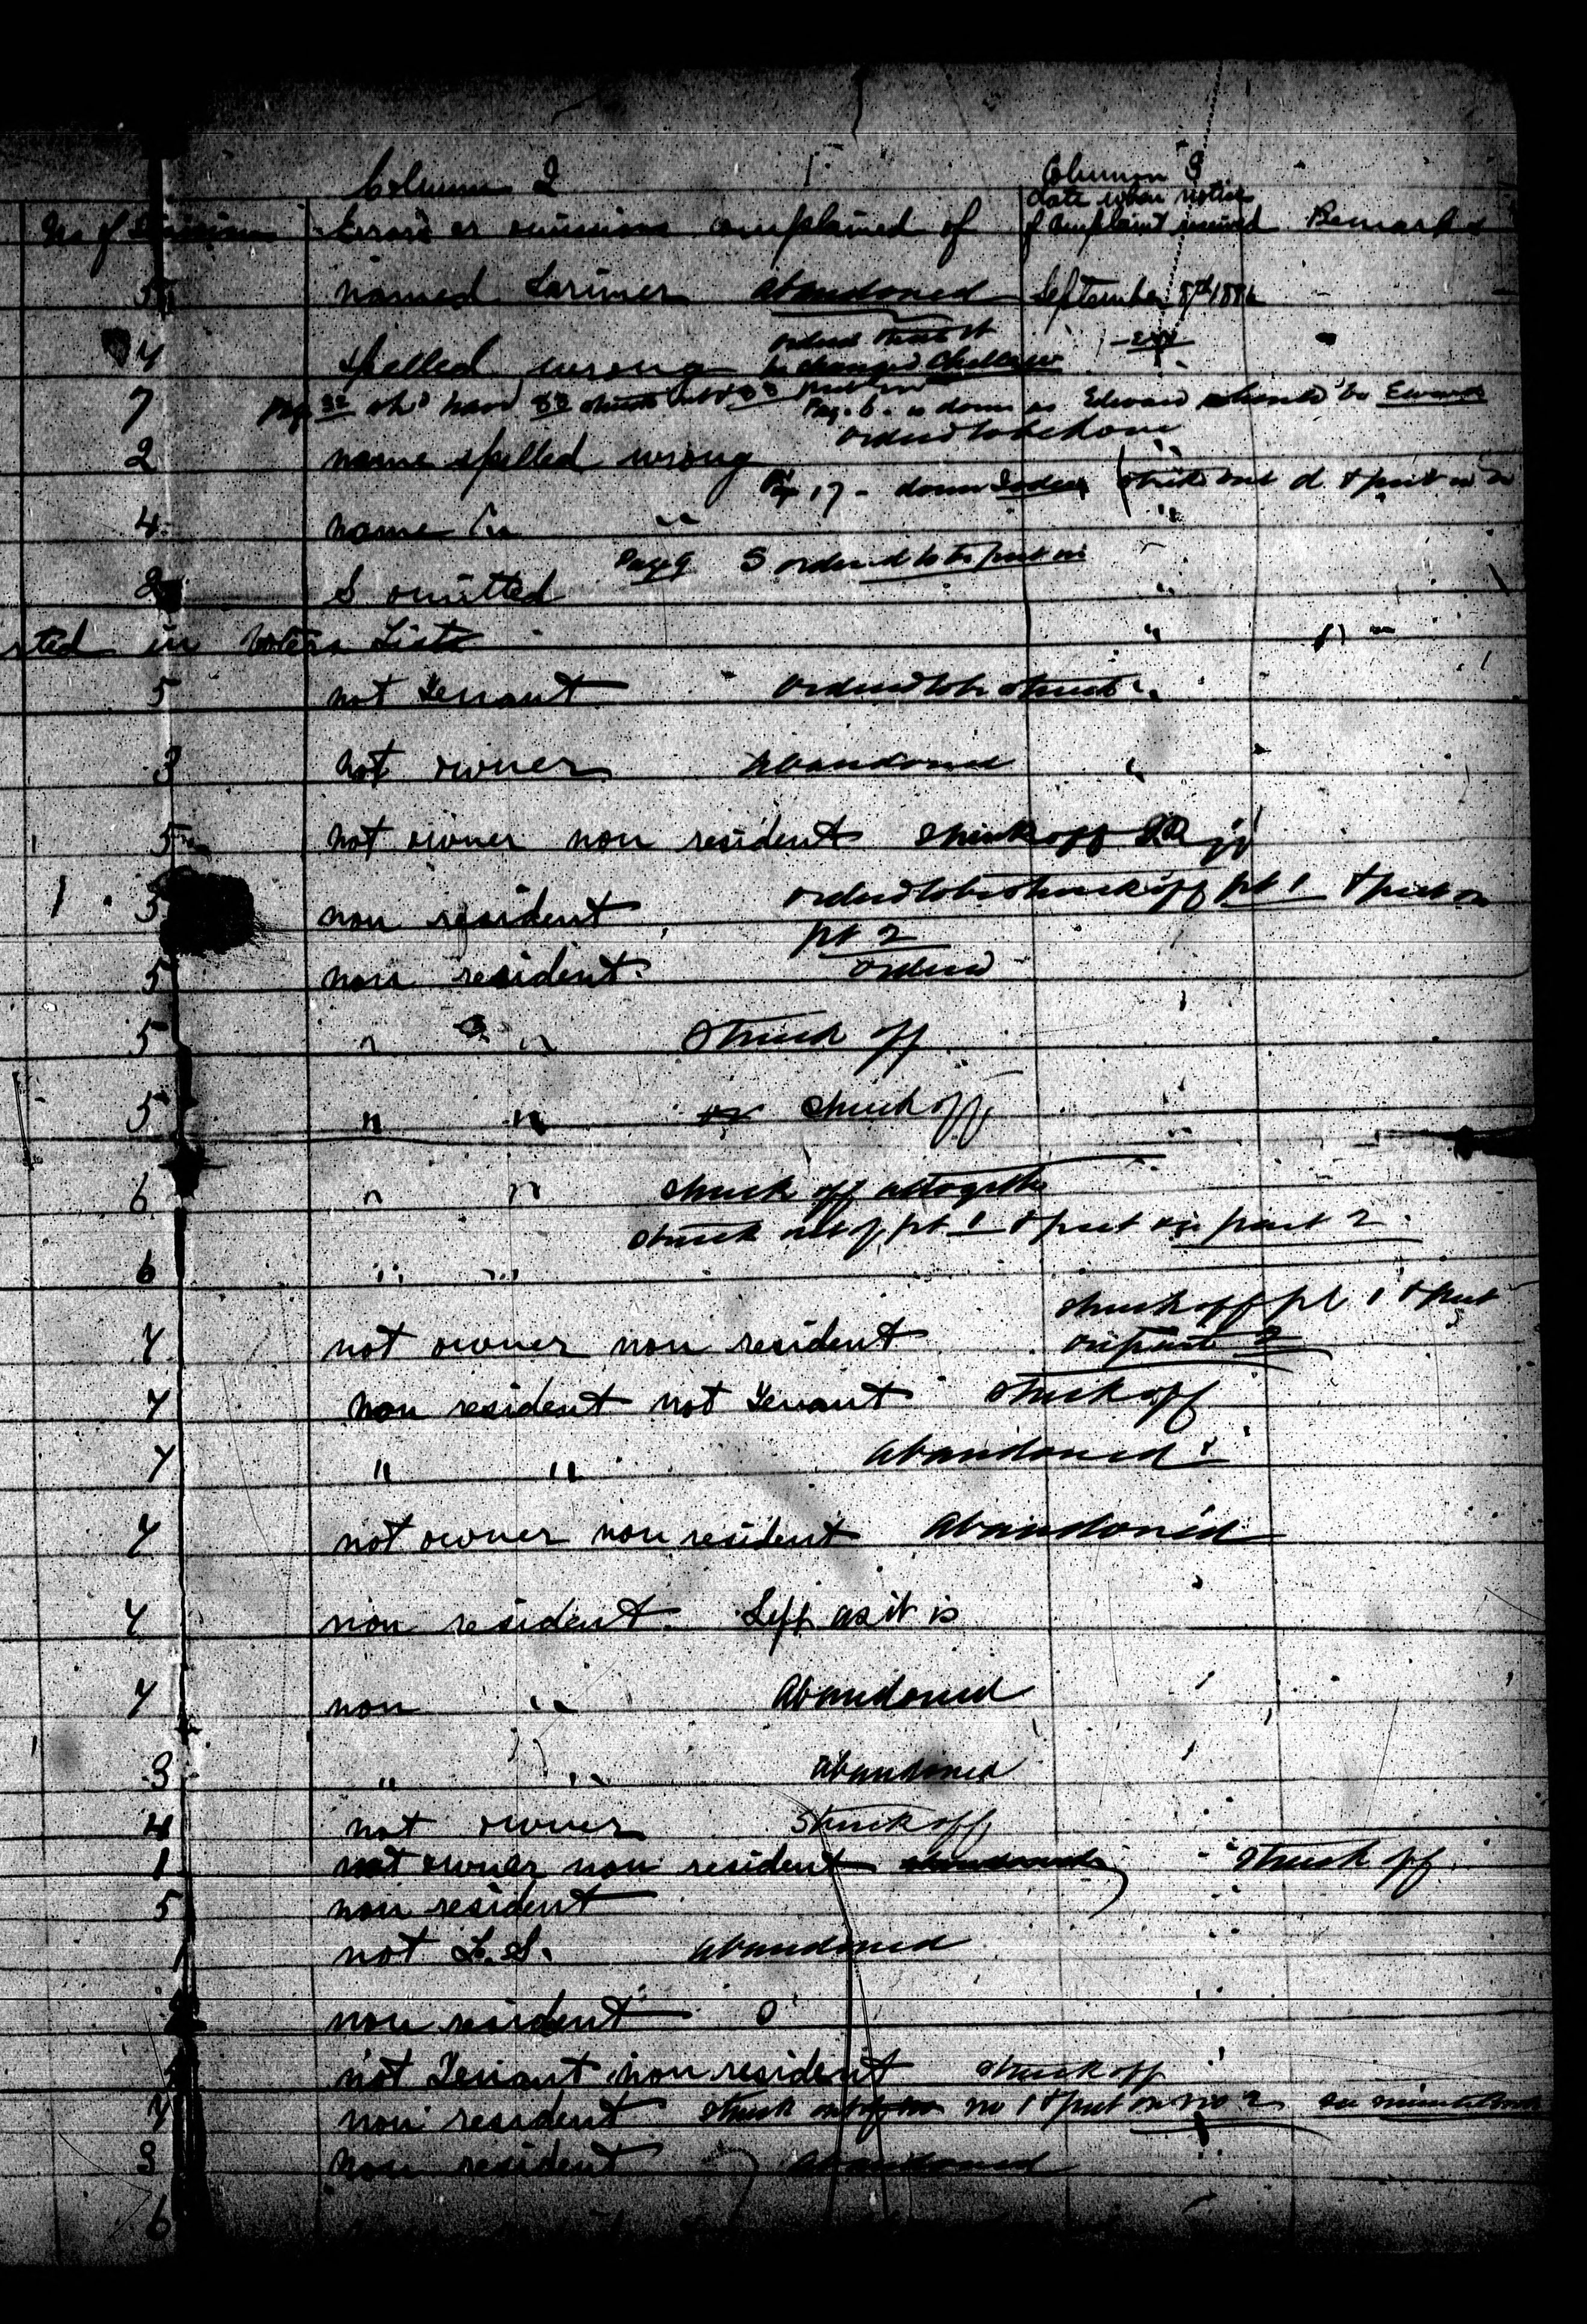 Column 2 Column 3
Date when notice
No of Division Errors or omissions complained of of complaint received Remarks
5 named Lorimer abandoned September 8th 1886
order that it
4 spelled wrong be changed
7 Page 32 shd have 33 struck out Page 6. is down as Edward should be Edwards
ordered to be done
2 name spelled wrong
Page 17 - down strike out d & put in
4 name " "
Page 9 S ordered to be put in
2 S omitted "
sted in Voters Lists "
5 not Tenant ordered to be struck "
3 not owner Abandoned "
5 not owner non resident struck off
ordered to be struck off pt 1 & put on
5 non resident pt 2
5 non resident ordered
5 " " Struck off
5 " " struck off
6 " " struck off altogether
struck out of pt 1 & put in part 2
6 " "
struck off pt 1 & put
4 not owner non resident in part 2
4 non resident not Tenant struck off
4 " " abandoned
4 not owner non resident abandoned
4 non resident Left as it is
4 non " Abandoned
3 " " abandoned
4 not owner Struck off
1 not owner non resident abandoned struck off
5 non resident
1 not L.S. abandoned
non resident
not Tenant non resident struck off
4 non resident struck out of no 1 & put on no 2 see minute book
3 non resident abandoned
6